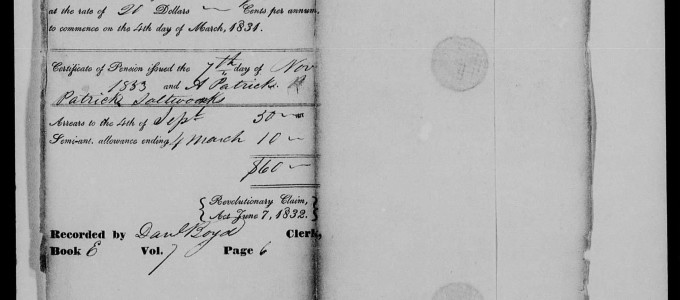 at the rate of 20 Dollars — Cents per annum,
to commence on the 4th day of March, 1831.
Certificate of Pension issued the 7th day of Nov
1833 and A Patrick
Patrick Saltworks
Arrears to the 4th of Sept 50 —
Semi-ant. allowance ending 4 March 10 —
$60 —
Revolutionary Claim,
Act June 7, 1832.
Recorded by Danl Boyd Clerk,
Book E Vol. 7 Page 6